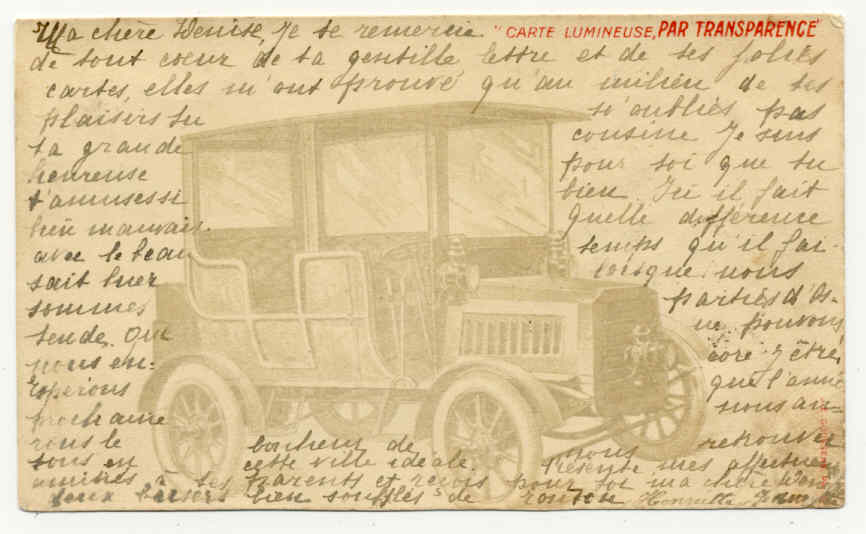 Ma chère Denise, Je te remercie "CARTE LUMINEUSE, PAR TRANSPARENCE"
de tout coeur de ta gentille lettre et de tes jolies
cartes, elles m'ont prouvé qu'au milieu de tes
plaisirs tu n'oubliés pas
ta grande cousine Je suis
heureuse pour toi que tu
t'amuses si bien. Ici il fait
bien mauvais. quelle différence
avec le beau temps qu'il fai-
sait hier lorsque nous
sommes partis d'Os-
tende. Que ne pouvons
nous en- core y être,
espérons que l'anné
prochaine nous au-
rons le bonheur de nous retrouver
tous en cette ville idéale. Présente mes
amitiés à tes parents et reçois pour toi ma chère
deux baisers bien soufflés de Henriette